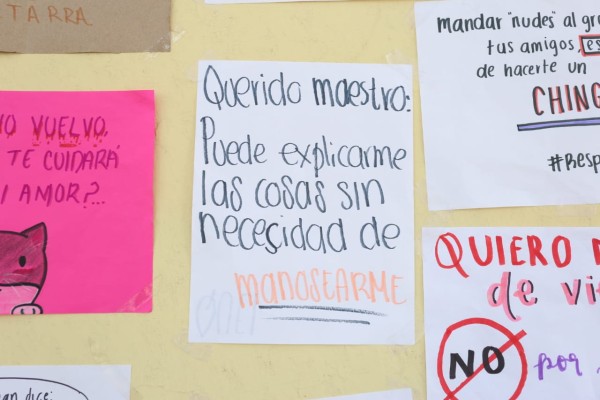 TARRA
NO VUELVO,
TE CUIDARÁ
MI AMOR?...
Querido maestro:
Puede explicarme
las cosas sin
neceçidad de
MANOSEARME
Mandar "nudes" al
tus amigos, es
de hacerte un
CHING
#Resp
QUIERO
de
NO por
dice: